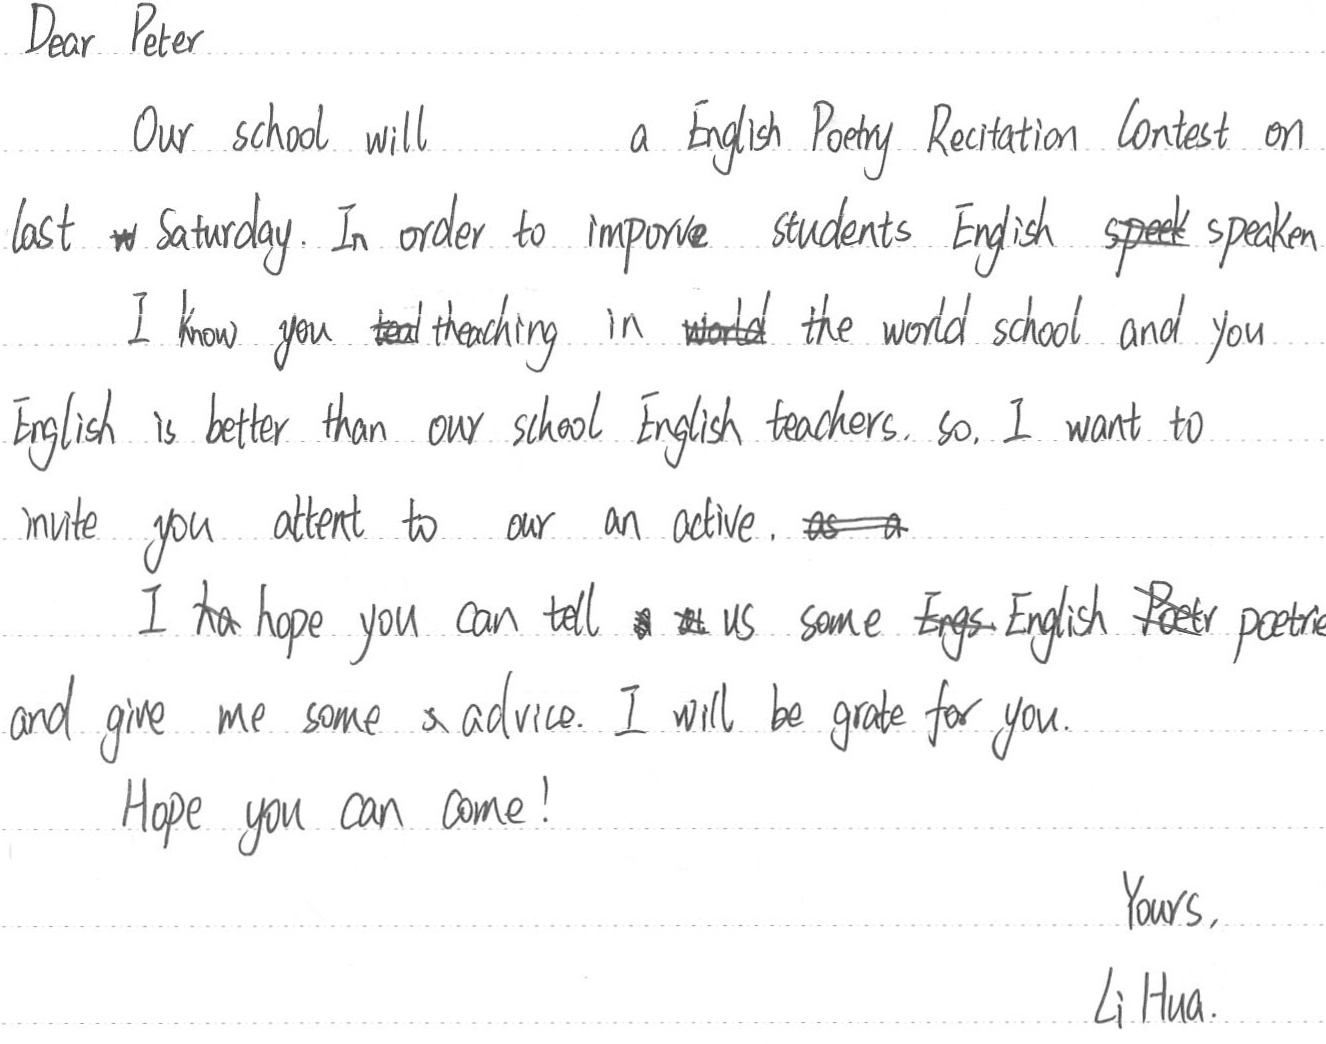 Dear Peter
Our school will a English Poetry Recitation Contest on
last Saturday. In order to imporve students English speaken
I know you theaching in the world school and you
English is better than our school English teachers. so. I want to
invite you attent to our an active.
I hope you can tell us some English poetrie
and give me some advice. I will be grate for you.
Hope you can come!
Yours,
Li Hua.